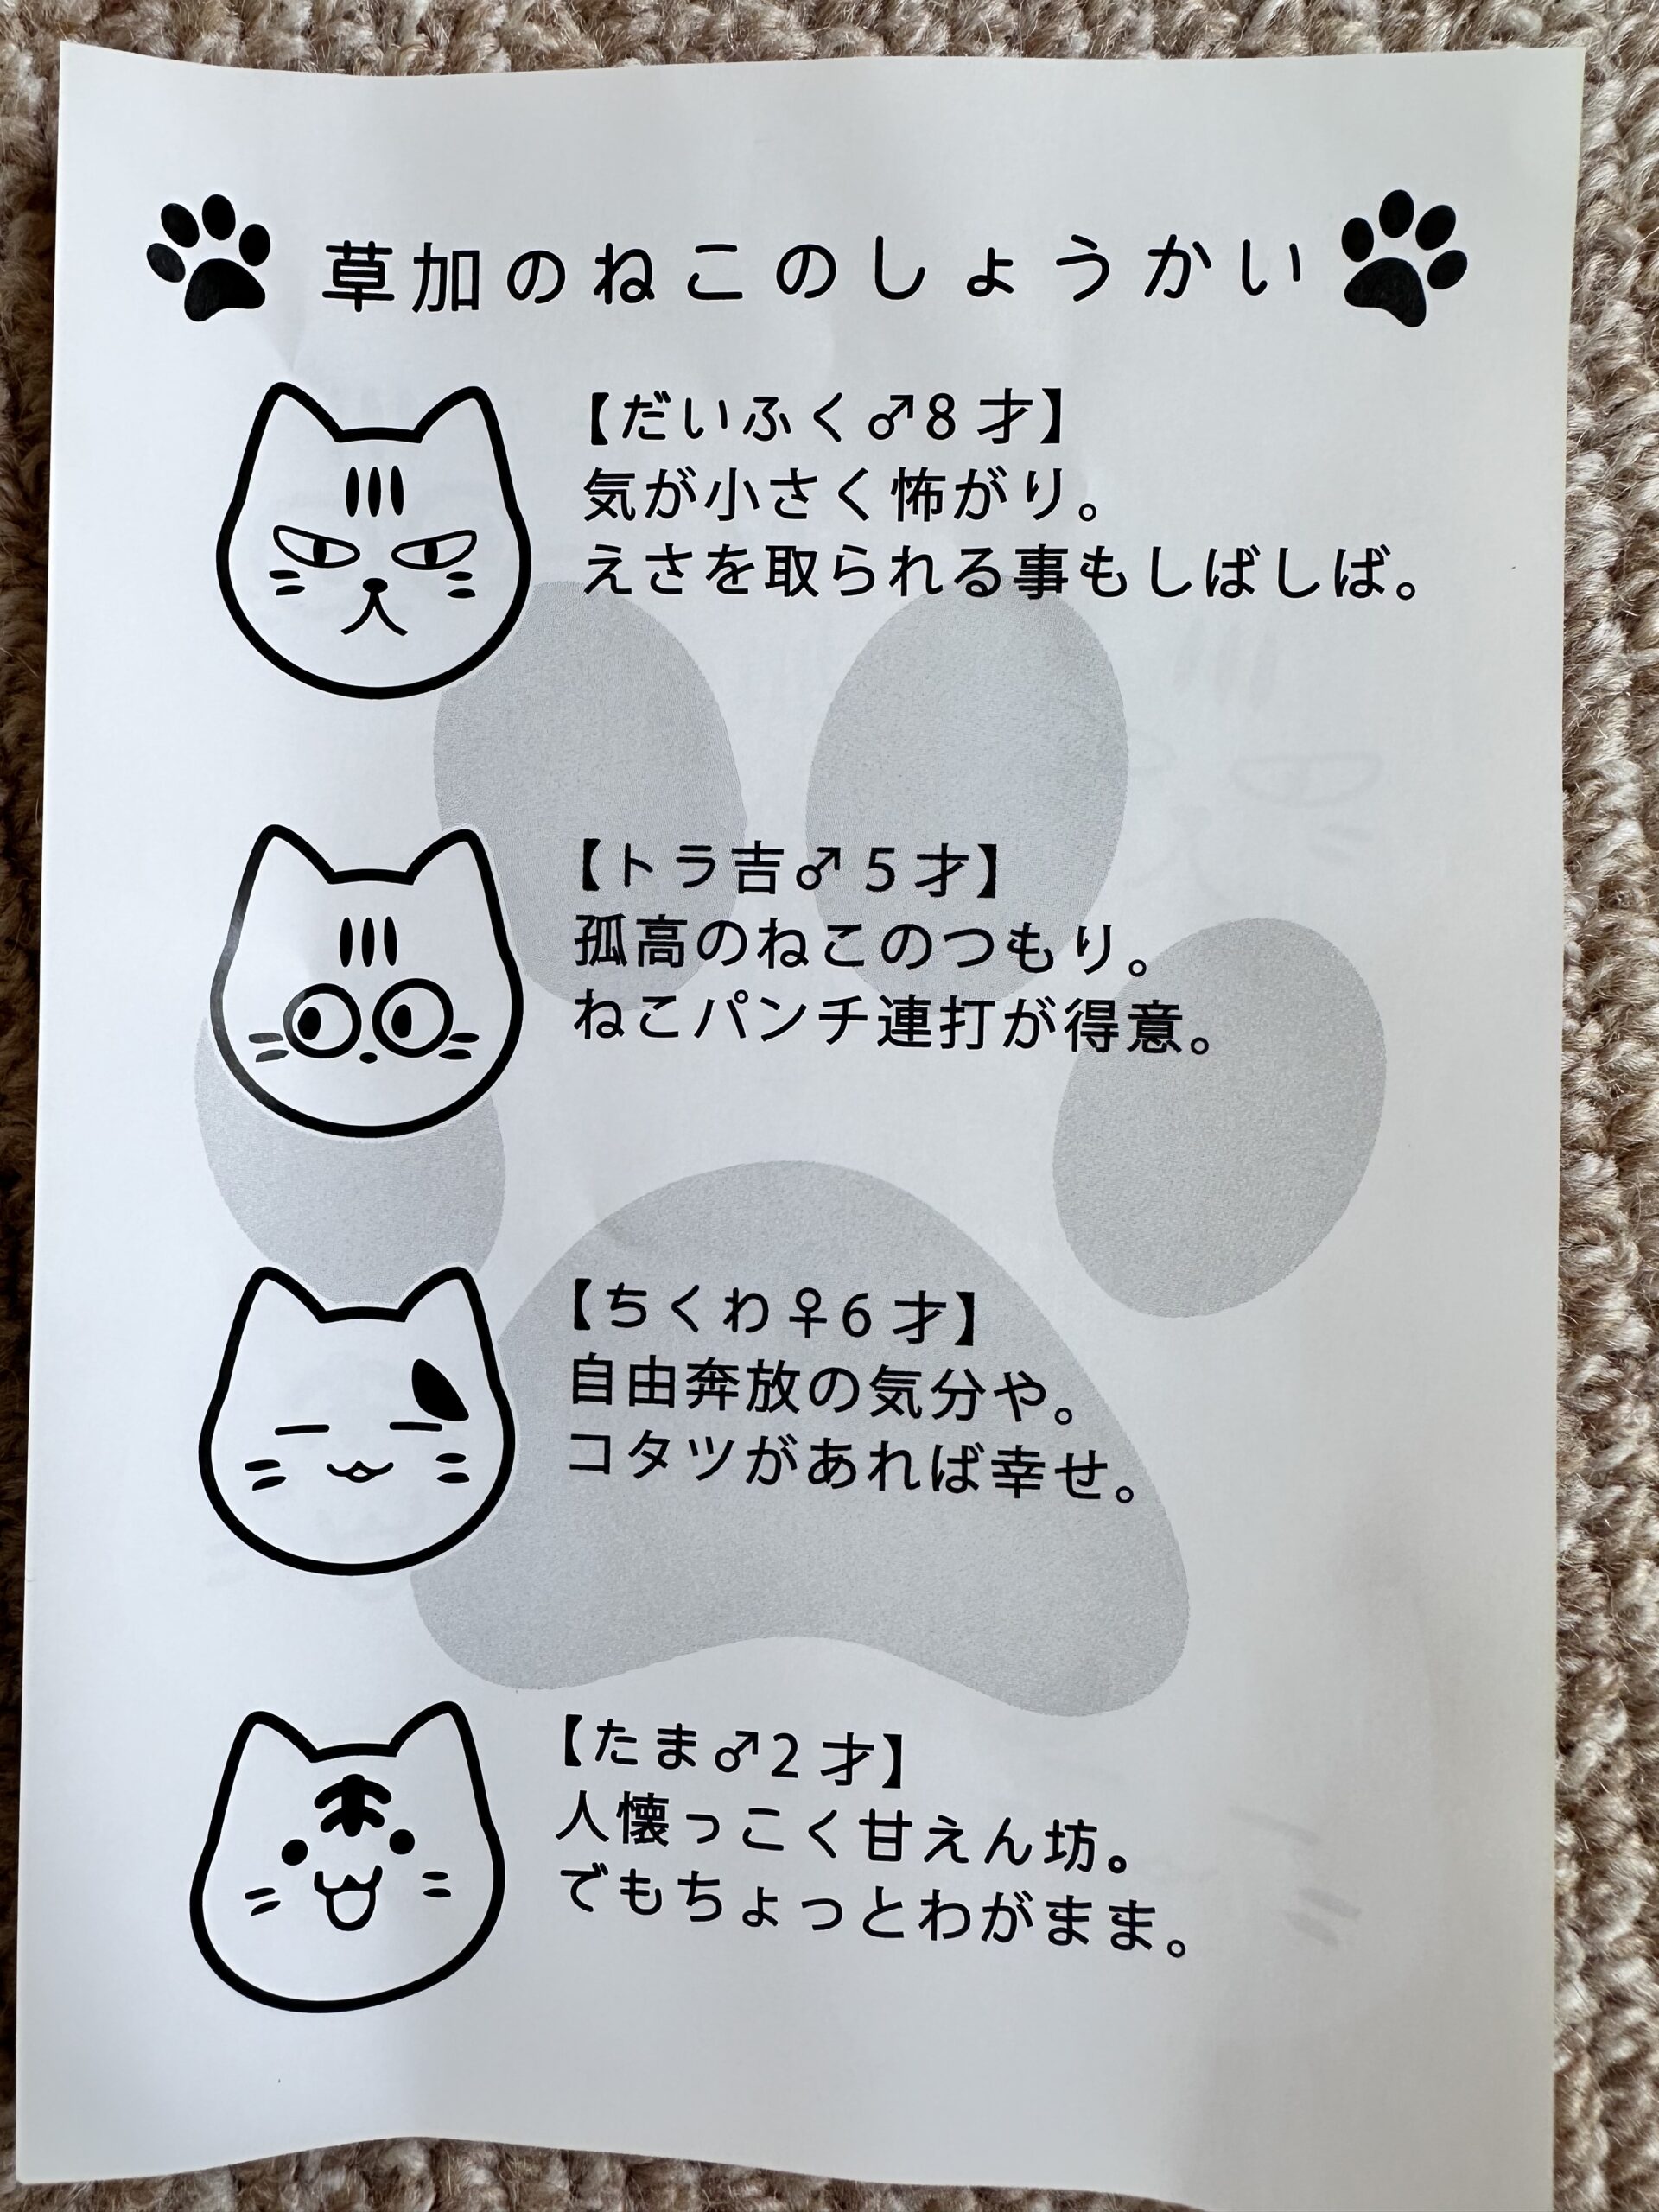 草加のねこのしょうかい
【だいふく♂8才】
気が小さく怖がり。
えさを取られる事もしばしば。
【トラ吉♂5才】
孤高のねこのつもり。
ねこパンチ連打が得意。
【ちくわ♀6才】
自由奔放の気分や。
コタツがあれば幸せ。
【たま♂2才】
人懐っこく甘えん坊。
でもちょっとわがまま。